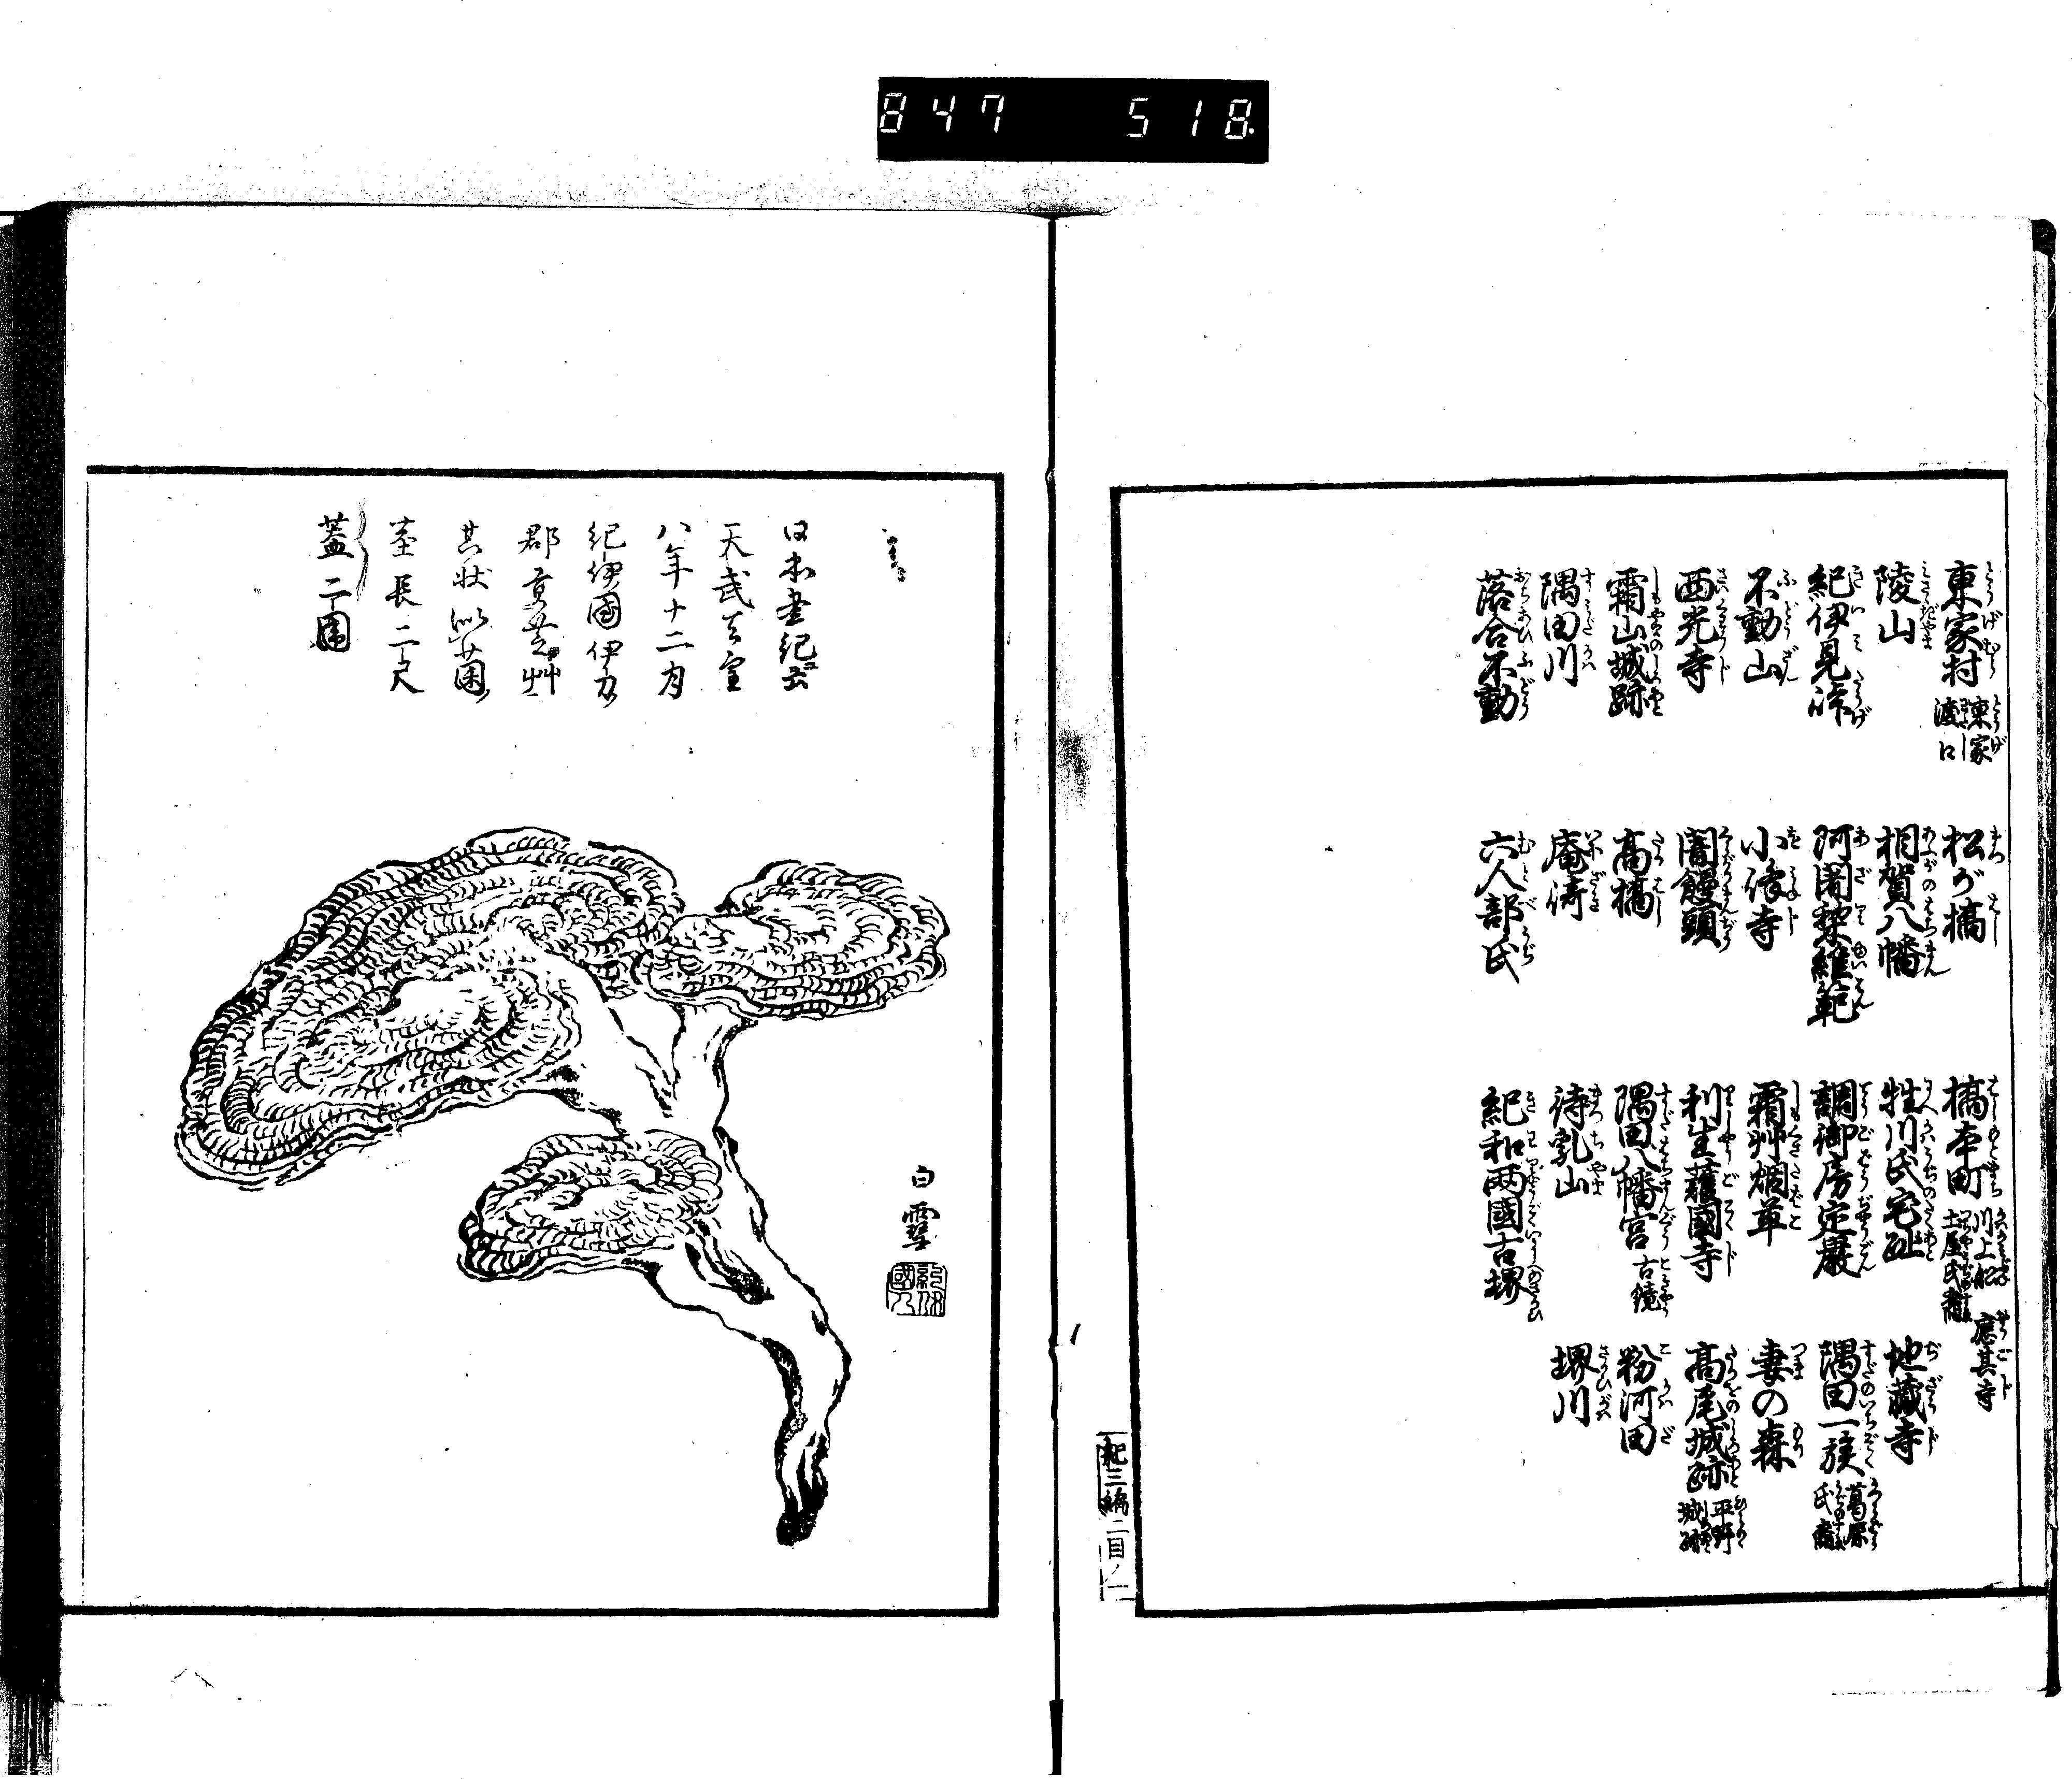 847 518
東家村 東家渡口
松が橋
橋本町 川上船 土屋氏裔 應其寺
陵山
相賀八幡
牲川氏宅趾
地藏寺
紀伊見峠
阿闍梨維範
調御房定嚴
隅田一族 葛原氏裔
不動山
小峰寺
霜艸烟草
妻の森
西光寺
闇饅頭
利生護國寺
高尾城跡 平野城跡
霜山城跡
高橋
隅田八幡宮 古鏡
粉河田
隅田川
庵崎
待乳山
堺川
落合不動
六人部氏
紀和两國古堺
紀三編 二目ノ一
日本書紀云
天武天皇
八年十二月
紀伊國伊刀
郡貢芝艸
其状似菌
莖長二尺
蓋二圍
白雪